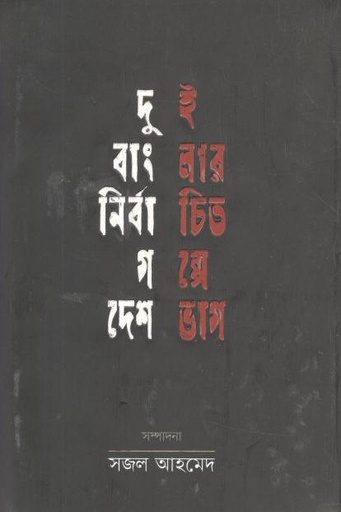 দুই
বাংলার
নির্বাচিত
গল্পে
দেশভাগ
সম্পাদনা
সজল আহমেদ